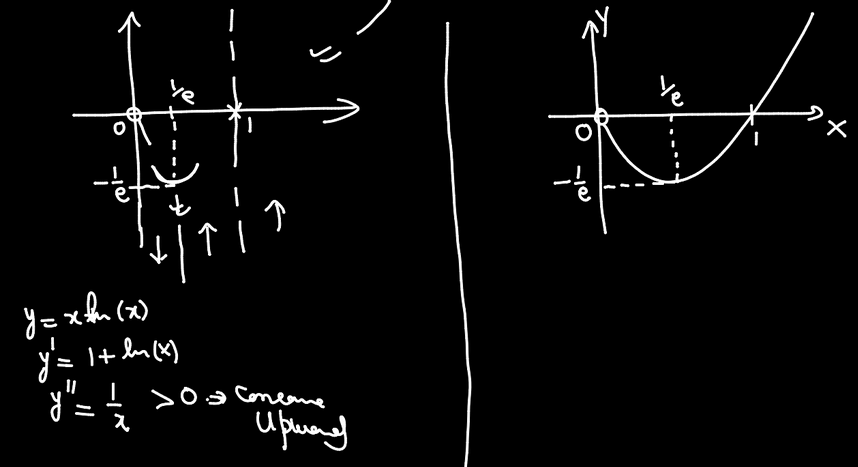 1/e
0
1
-1/e
y = x ln(x)
y' = 1 + ln(x)
y'' = 1/x > 0 ⇒ Concave
Upward
Y
1/e
0
1
X
-1/e